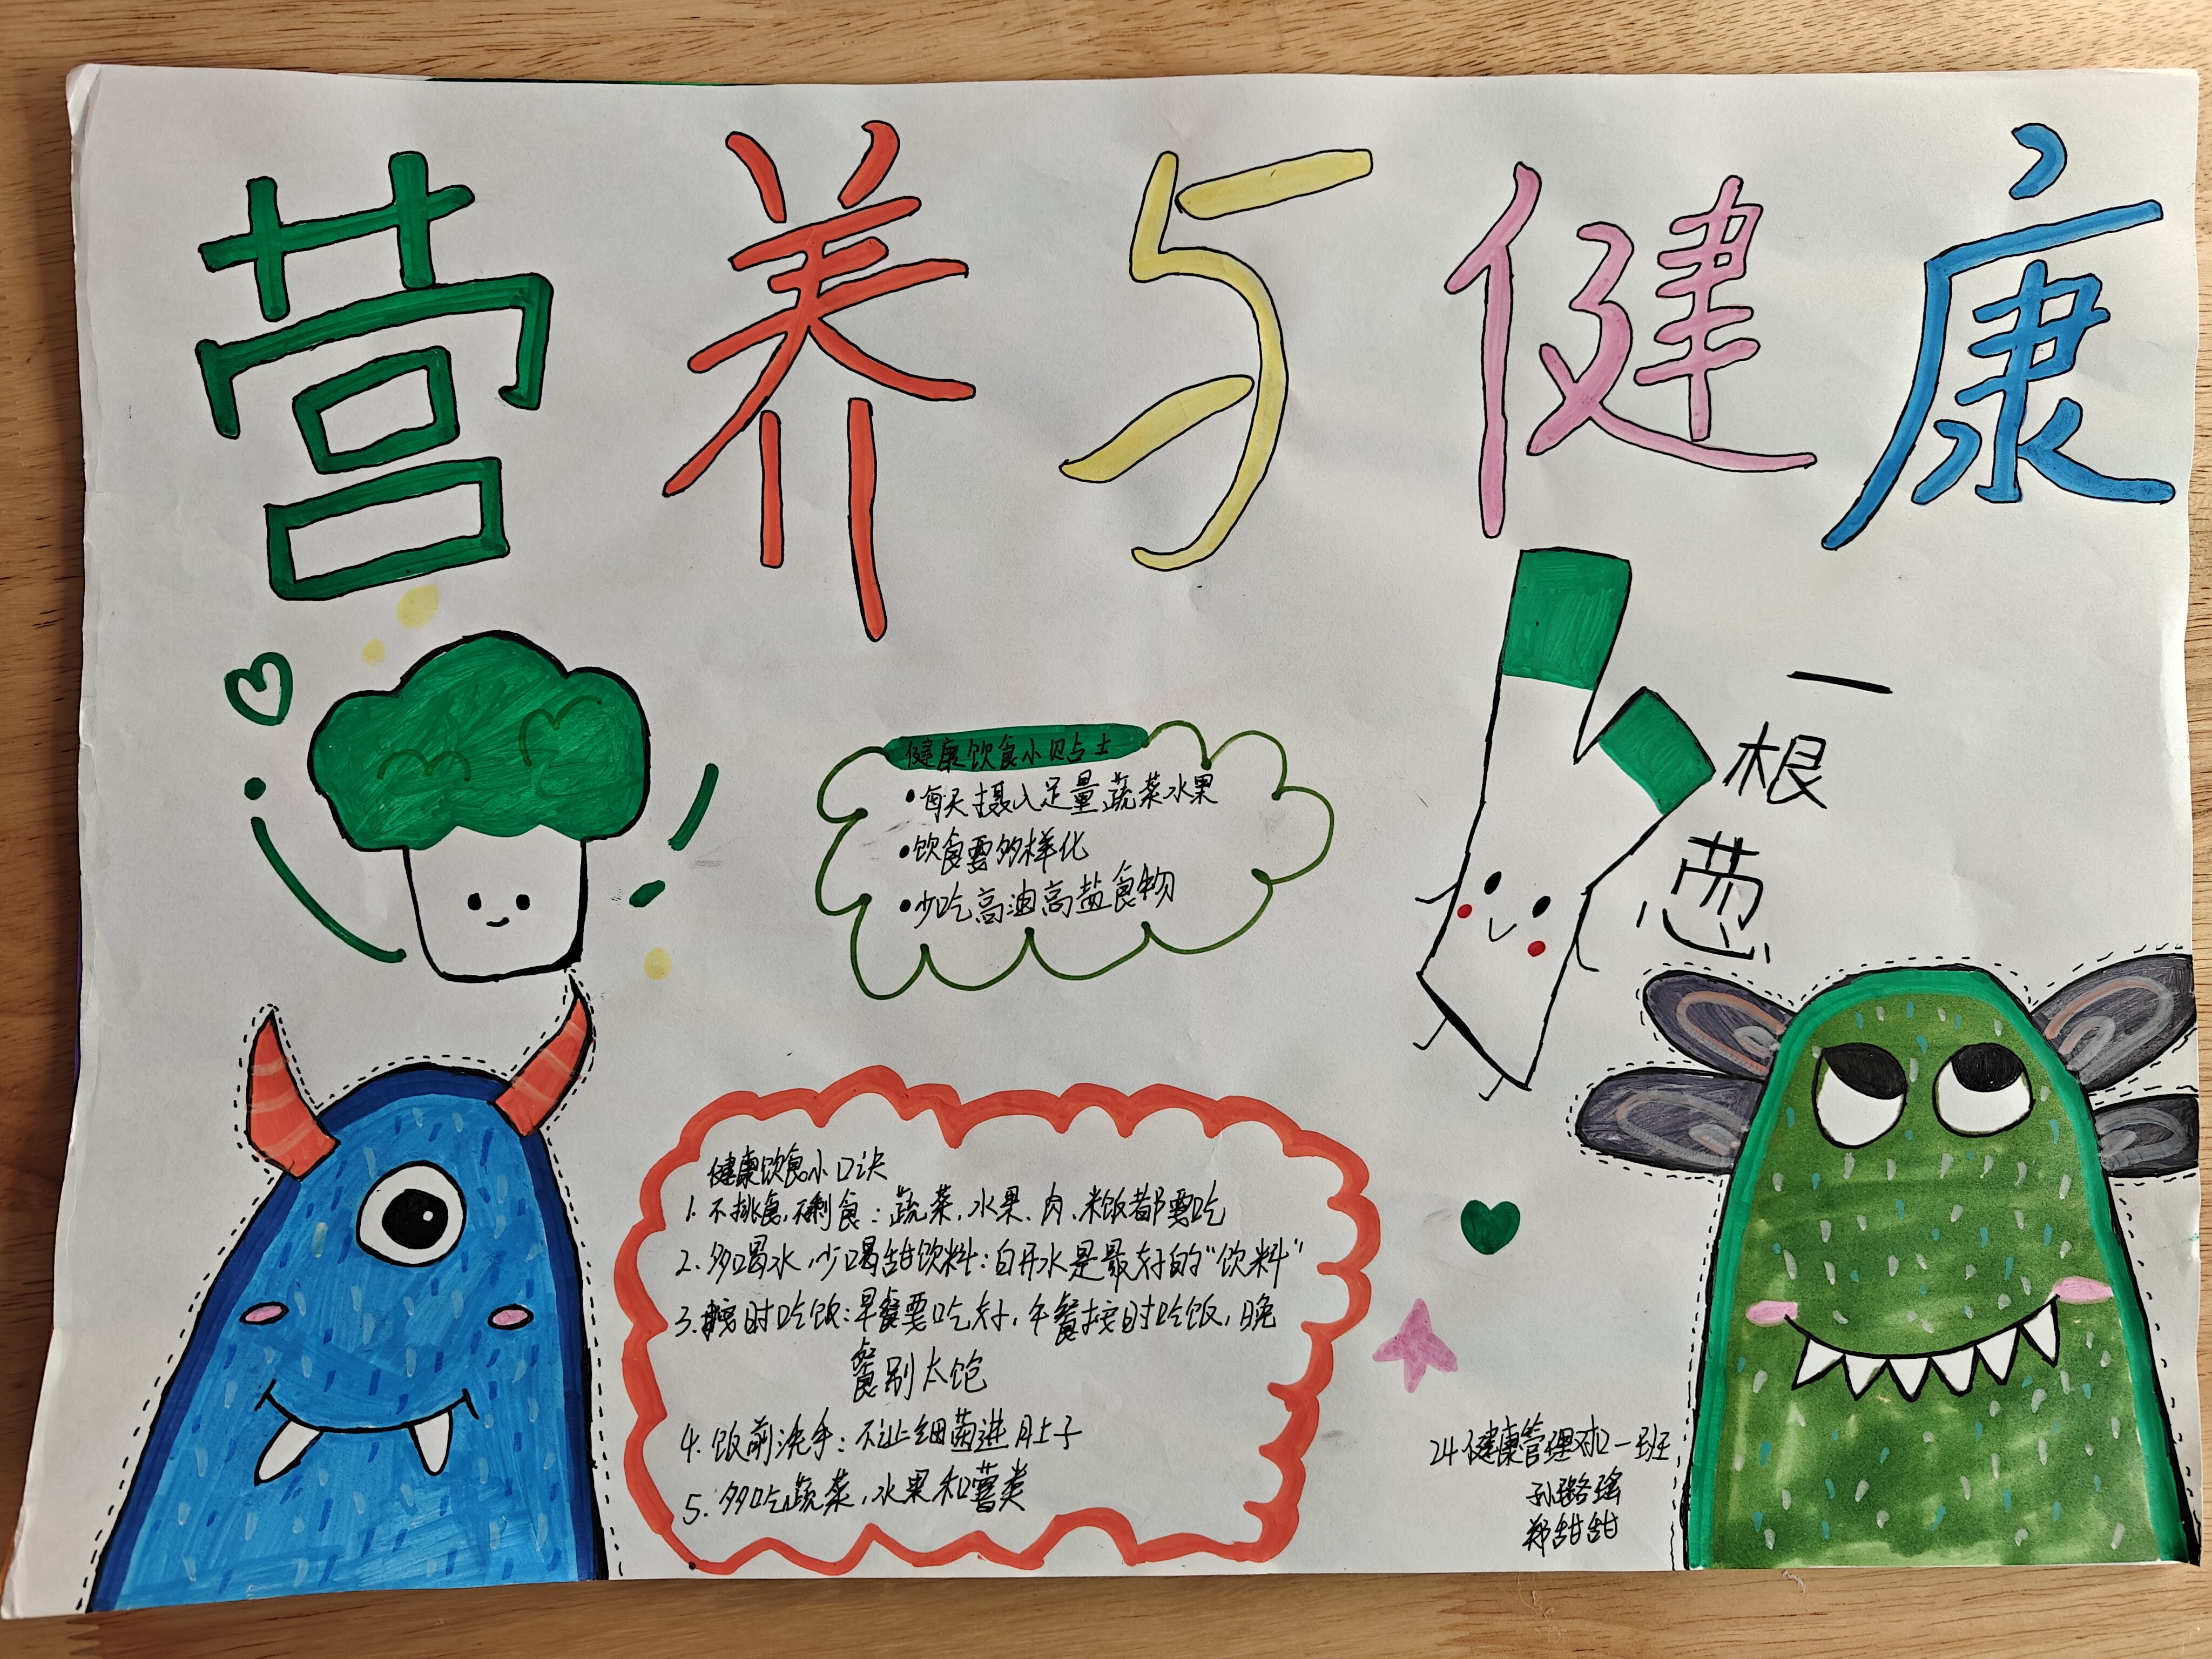 营养与健康
健康饮食小贴士
•每天摄入足量蔬菜水果
•饮食要多样化
•少吃高油高盐食物
一
根
葱
健康饮食小口诀
1.不挑食,不剩食:蔬菜,水果、肉、米饭都要吃
2.多喝水,少喝甜饮料:白开水是最好的“饮料”
3.时吃饭:早餐要吃好,午餐按时吃饭,晚
餐别太饱
4.饭前洗手:不让细菌进肚子
5.多吃蔬菜,水果和薯类
24健康管理对口一班
孙璐瑶
郑甜甜